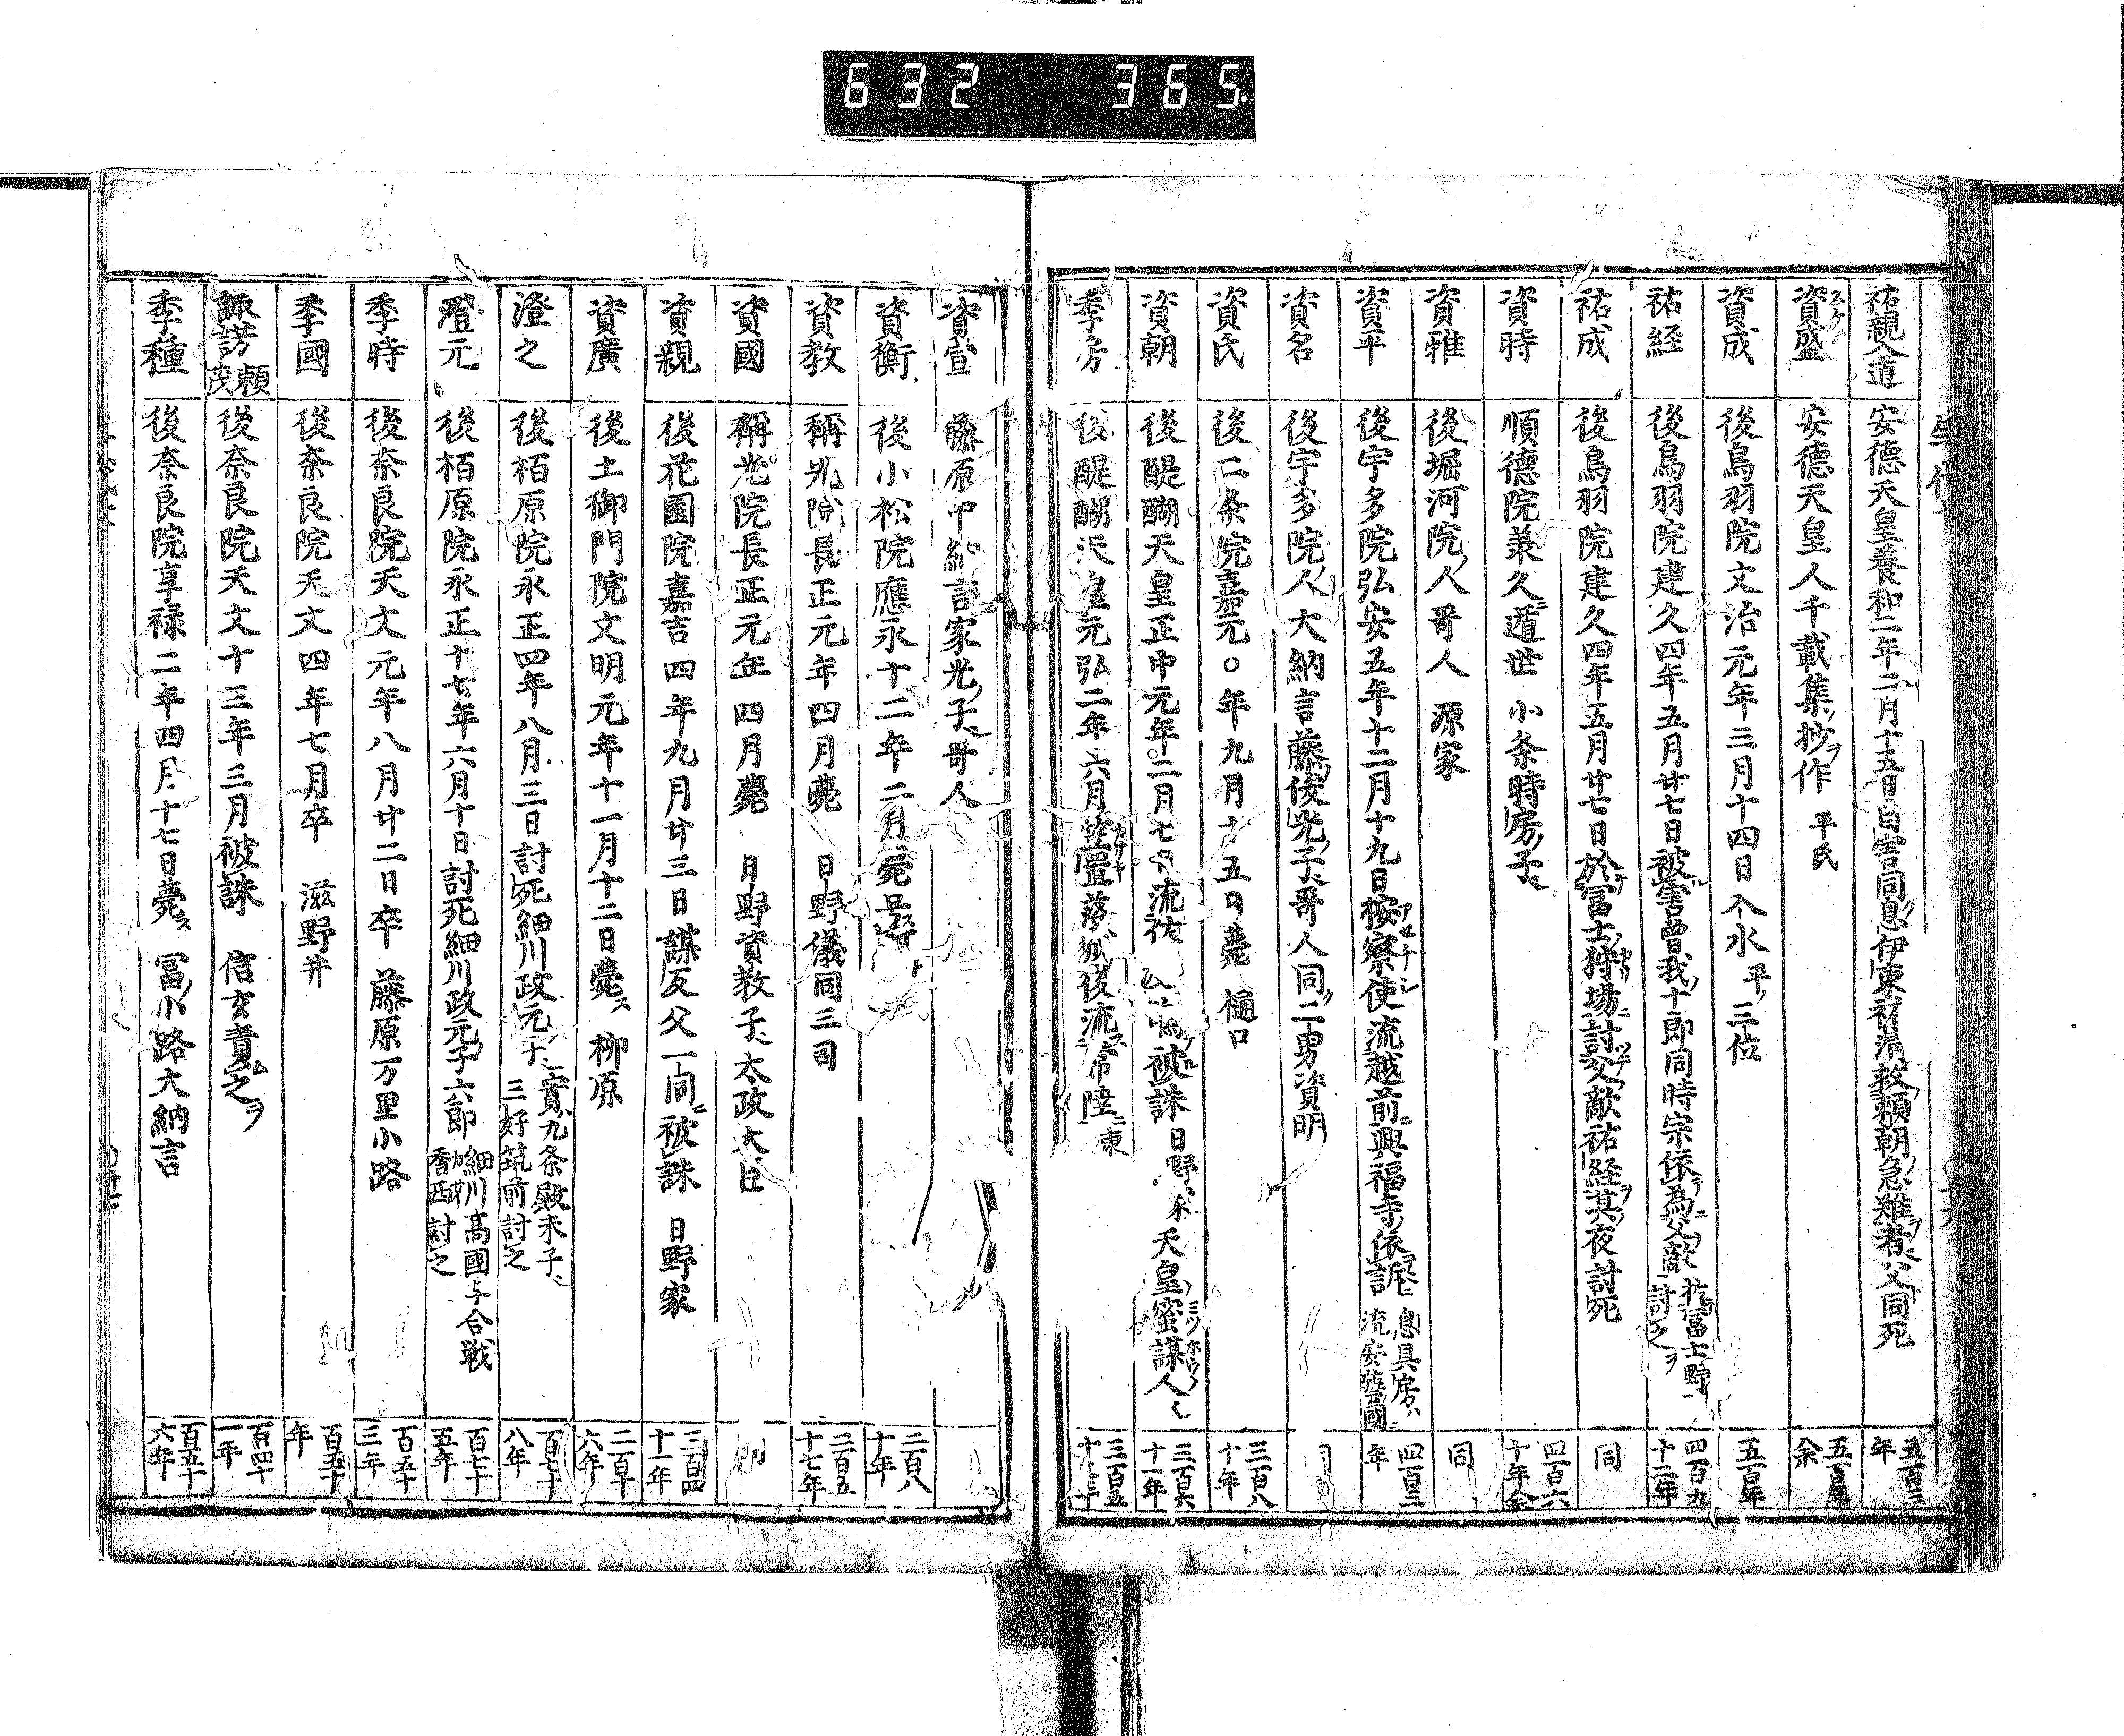 632 365
祐親入道 安徳天皇養和二年二月十五日自害同息伊東祐清救頼朝急難者父同死 五百三年
資盛 安徳天皇人千載集抄作 平氏 五百年余
資成 後鳥羽院文治元年三月十四日入水 平三位 五百年
祐経 後鳥羽院建久四年五月廿七日被害曽我十郎同時宗依為父敵 於富士野討之 四百九十二年
祐成 後鳥羽院建久四年五月廿七日於冨士狩場討父敵祐経其夜討死 同
資時 順徳院兼久遁世 小条時房子 四百六十年余
資雅 後堀河院人哥人 源家 同
資平 後宇多院弘安五年十二月十九日按察使流越前興福寺依訴 息具房ハ流安藝國 四百三年
資名 後宇多院人大納言藤俊光子哥人同二男資明
資氏 後二条院嘉元〇年九月十五日薨 樋口 三百八十年
資朝 後醍醐天皇正中元年二月七日流 被誅 日野 天皇蜜謀人 三百六十一年
季房 後醍醐天皇元弘二年六月笠置落城後流常陸東 三百五十三年
資宣 藤原中納言家光子哥人
資衡 後小松院應永十二年二月薨 三百八十年
資教 稱光院長正元年四月薨 日野儀同三司 二百五十七年
資國 稱光院長正元年四月薨 日野資教子太政大臣
資親 後花園院嘉吉四年九月廿三日謀反父一同被誅 日野家 二百四十一年
資廣 後土御門院文明元年十一月十二日薨 柳原 二百十六年
澄之 後栢原院永正四年八月三日討死細川政元子 實九条殿末子三好筑前討之 百七十八年
澄元 後栢原院永正十七年六月十日討死細川政元子六郎 細川高國与合戦 香西討之 百七十五年
季時 後奈良院天文元年八月廿二日卒 藤原万里小路 百五十三年
季國 後奈良院天文四年七月卒 滋野井 百五十年
諏訪頼茂 後奈良院天文十三年三月被誅 信玄責之 百四十一年
季種 後奈良院享禄二年四月十七日薨 冨小路大納言 百五十六年